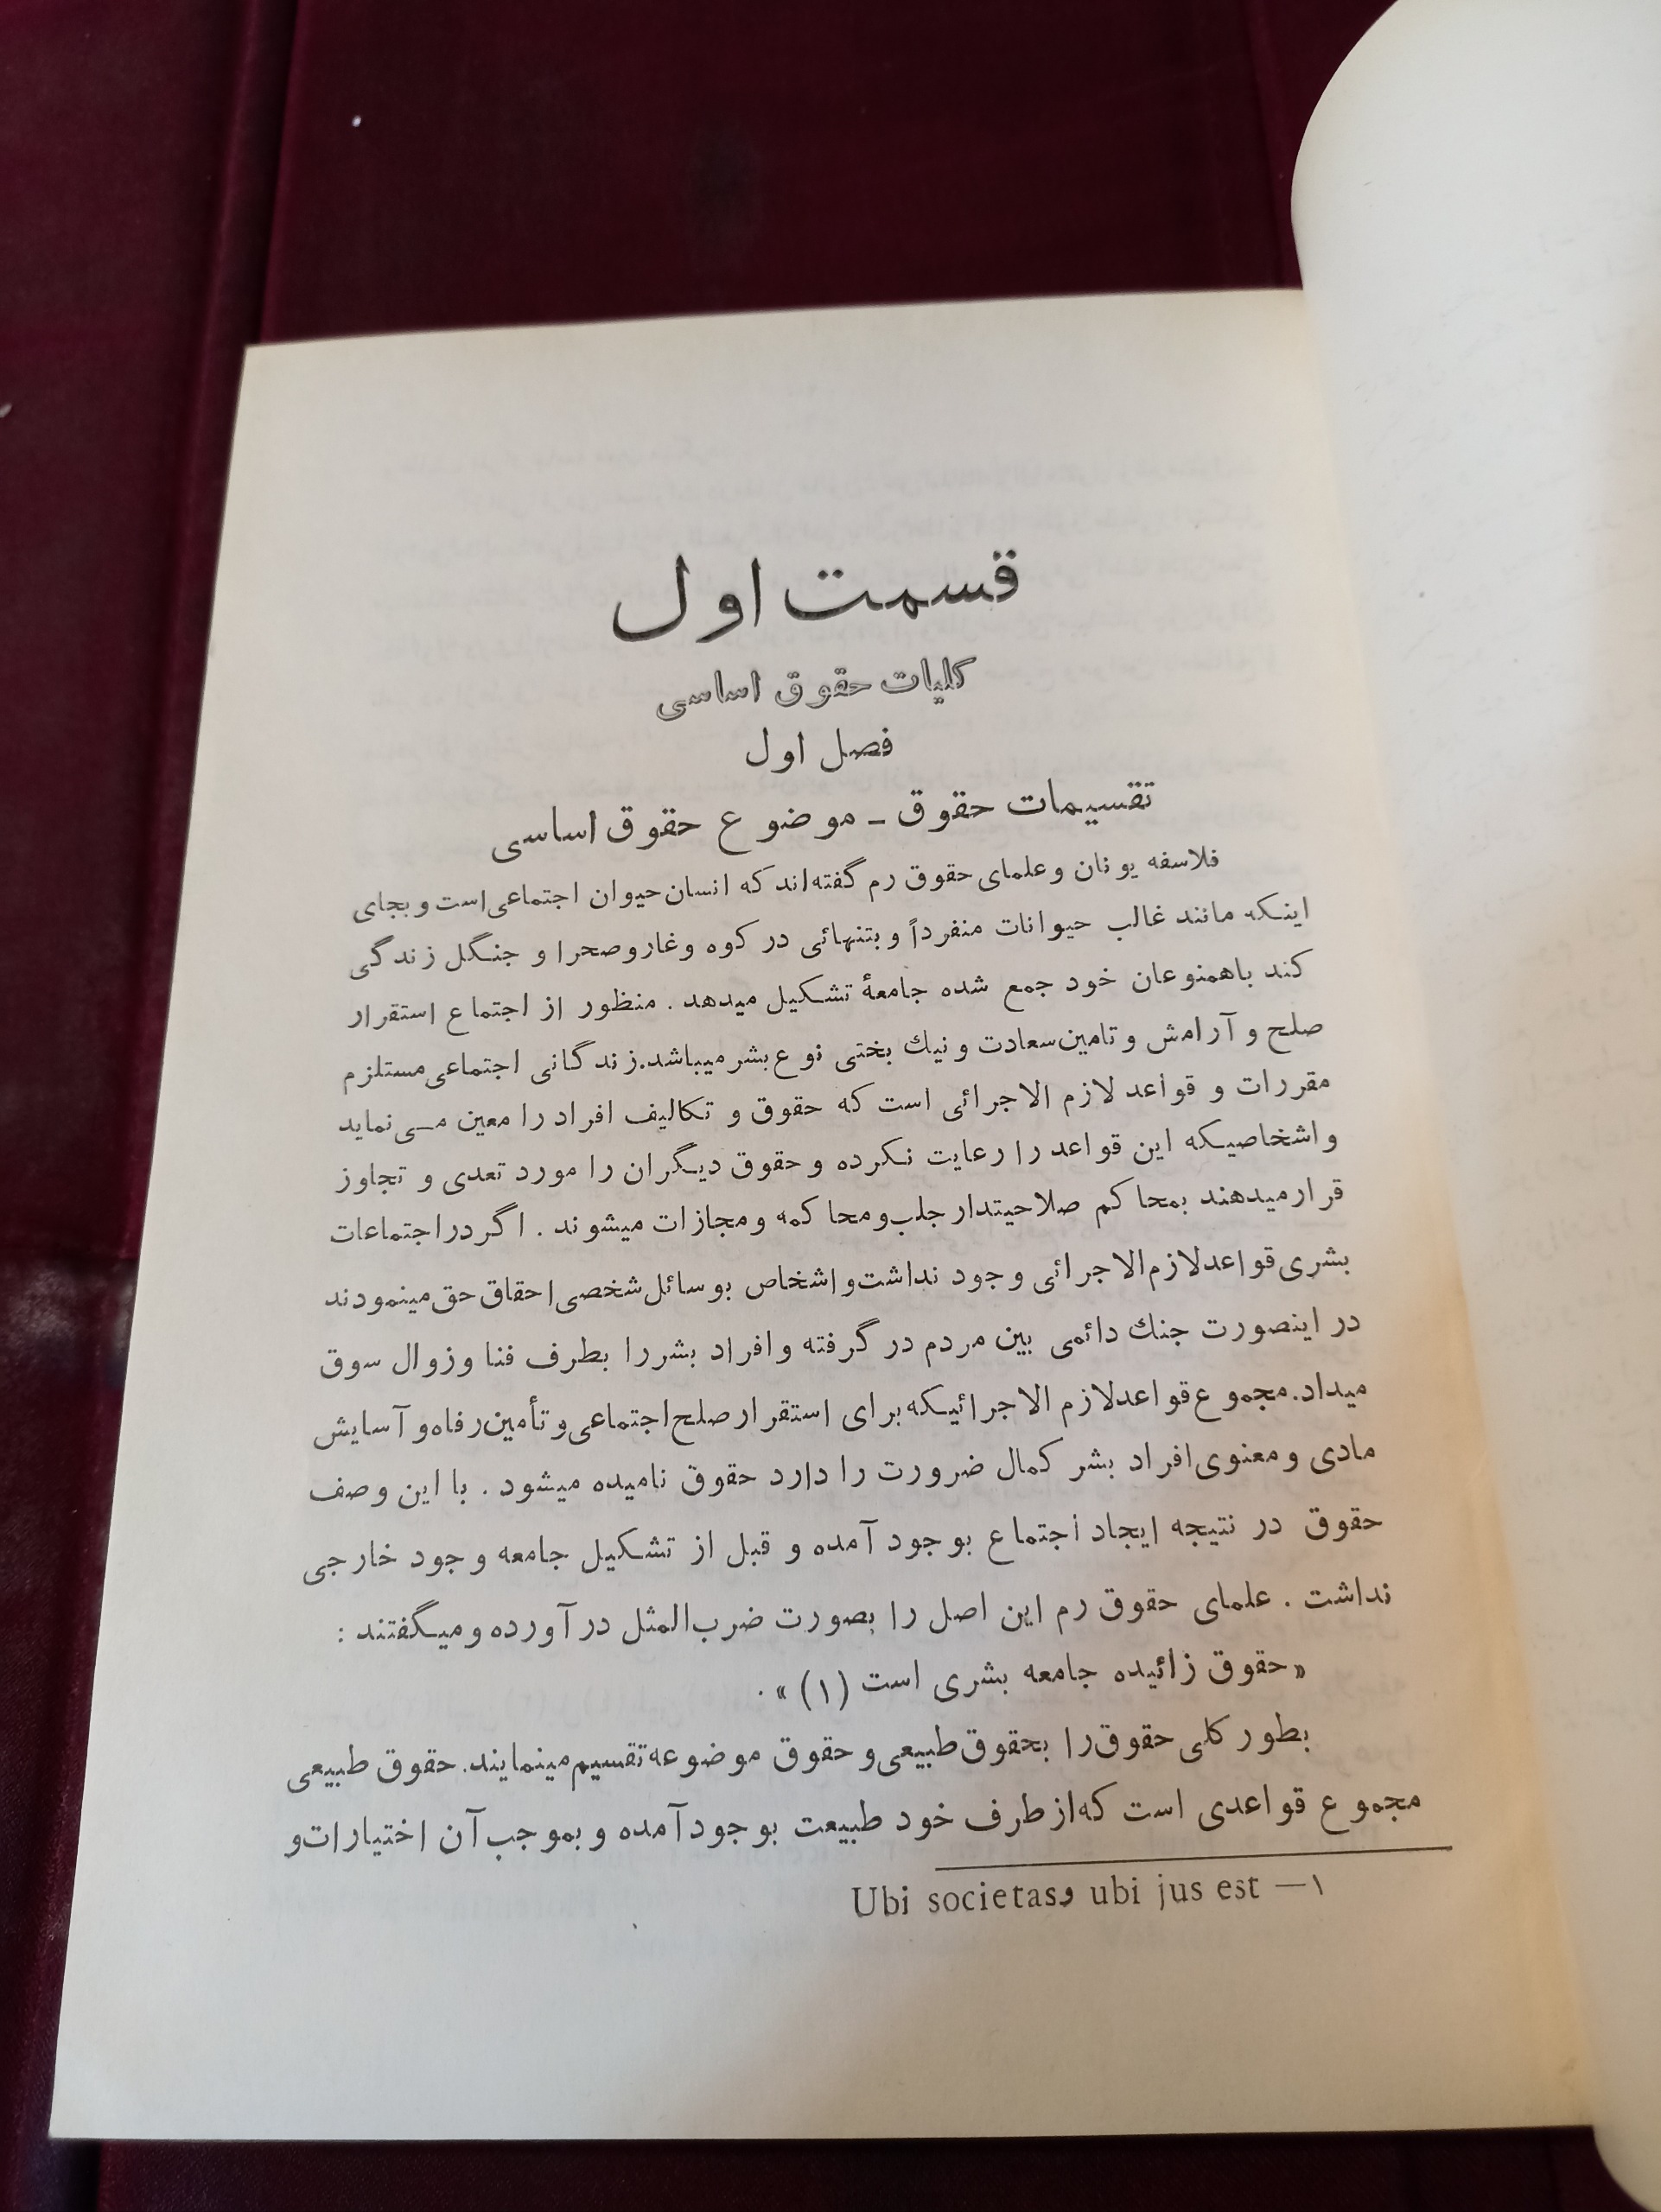 قسمت اول
کلیات حقوق اساسی
فصل اول
تقسیمات حقوق ـ موضوع حقوق اساسی
فلاسفه یونان و علمای حقوق رم گفته‌اند که انسان حیوان اجتماعی است و بجای
اینکه مانند غالب حیوانات منفرداً و بتنهائی در کوه و غار و صحرا و جنگل زندگی
کند باهمنوعان خود جمع شده جامعهٔ تشکیل میدهد . منظور از اجتماع استقرار
صلح و آرامش و تامین سعادت و نیك بختی نوع بشر میباشد. زندگانی اجتماعی مستلزم
مقررات و قواعد لازم الاجرائی است که حقوق و تکالیف افراد را معین مــی نماید
و اشخاصیکه این قواعد را رعایت نکرده و حقوق دیگران را مورد تعدی و تجاوز
قرار میدهند بمحاکم صلاحیتدار جلب و محاکمه و مجازات میشوند . اگر در اجتماعات
بشری قواعد لازم الاجرائی وجود نداشت و اشخاص بوسائل شخصی احقاق حق مینمودند
در اینصورت جنك دائمی بین مردم در گرفته و افراد بشر را بطرف فنا و زوال سوق
میداد. مجموع قواعد لازم الاجرائیکه برای استقرار صلح اجتماعی و تأمین رفاه و آسایش
مادی و معنوی افراد بشر کمال ضرورت را دارد حقوق نامیده میشود . با این وصف
حقوق در نتیجه ایجاد اجتماع بوجود آمده و قبل از تشکیل جامعه وجود خارجی
نداشت . علمای حقوق رم این اصل را بصورت ضرب‌المثل در آورده و میگفتند :
«حقوق زائیده جامعه بشری است (۱) » .
بطور کلی حقوق را بحقوق طبیعی و حقوق موضوعه تقسیم مینمایند. حقوق طبیعی
مجموع قواعدی است که از طرف خود طبیعت بوجود آمده و بموجب آن اختیارات و
۱— Ubi societas، ubi jus est